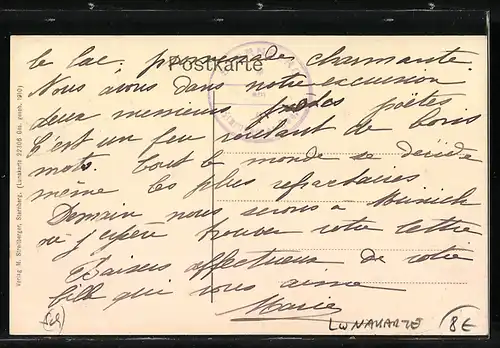 Postkarte
le lac, promenade charmante.
Nous avons dans notre excursion
deux messieurs poëtes
C'est un feu roulant de bons
mots. Tout le monde se décide
même les plus refractaires
Demain nous serons à Munich
où j'espère trouver votre lettre
Baisers affectueux de votre
fille qui vous aime
Marie
Verlag M. Streitberger, Starnberg. (Lunakarte 22306 Ges. gesch. 1910)
LUNAKARTE
8€